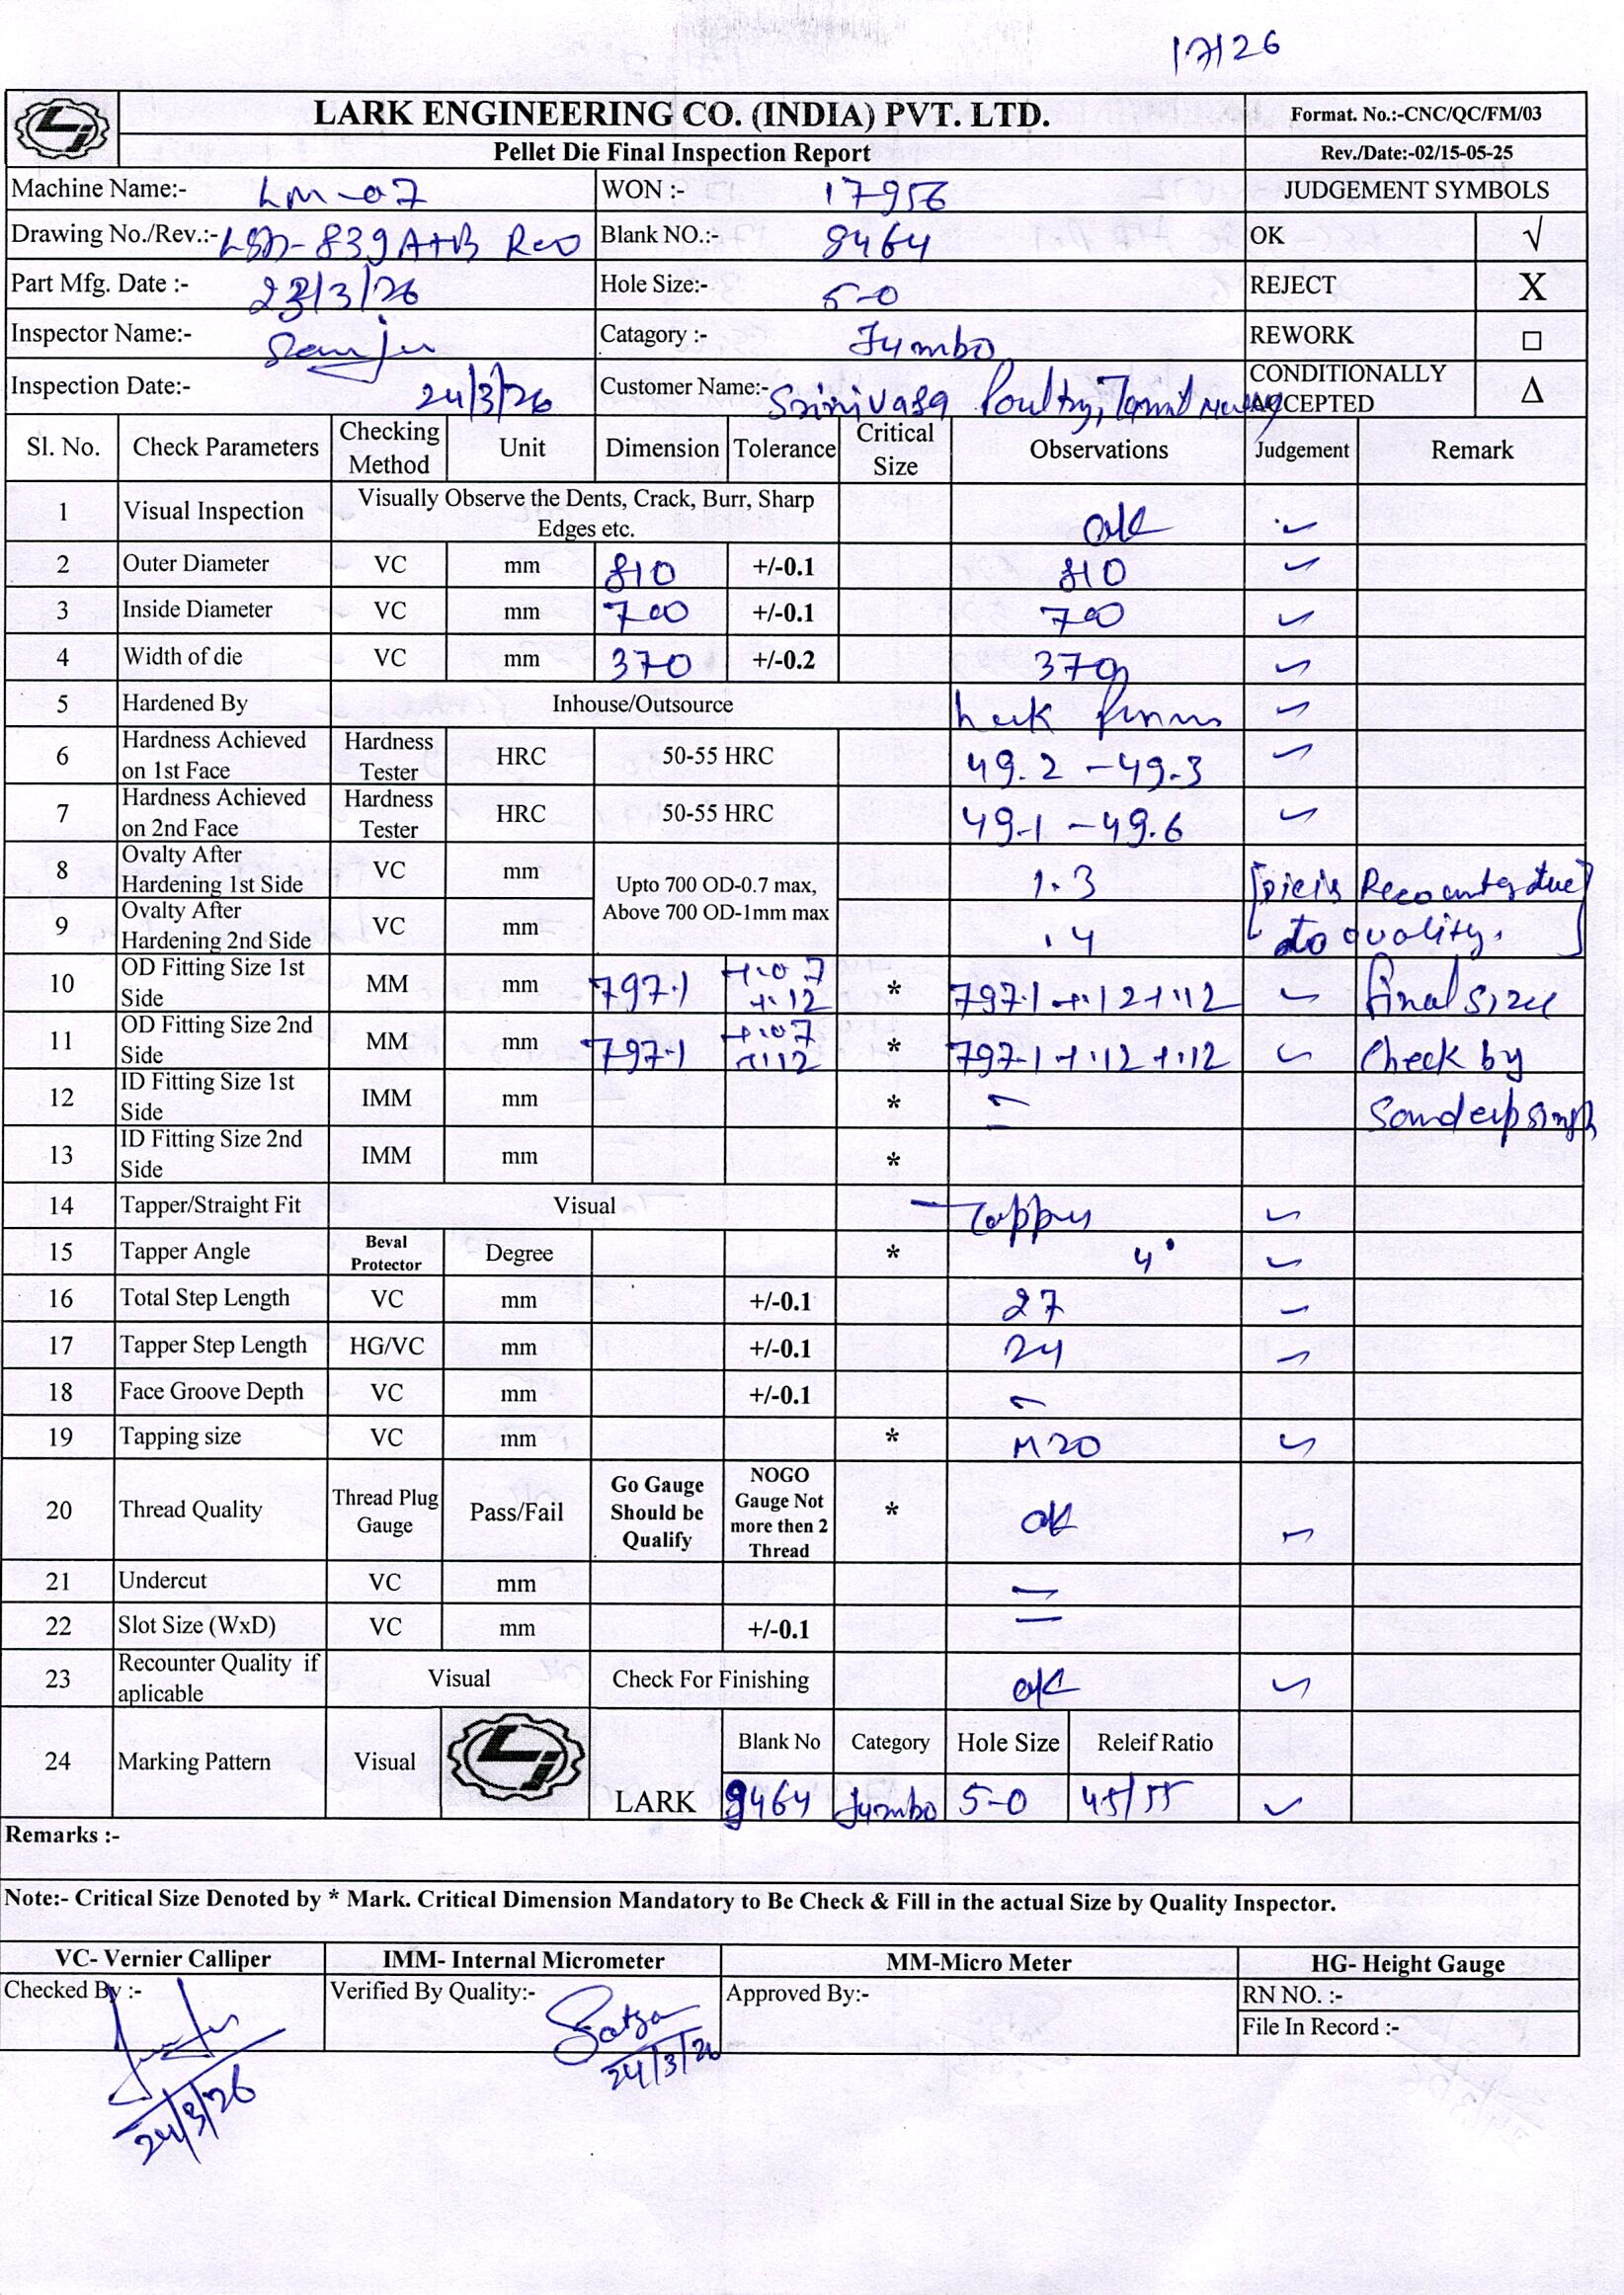 17126
LARK ENGINEERING CO. (INDIA) PVT. LTD.
Format. No.:-CNC/QC/FM/03
Pellet Die Final Inspection Report
Rev./Date:-02/15-05-25
Machine Name:- LM-07 WON :- 17956 JUDGEMENT SYMBOLS
Drawing No./Rev.:- LSD-839A+B Reo Blank NO.:- 9464 OK √
Part Mfg. Date :- 23/3/26 Hole Size:- 5-0 REJECT X
Inspector Name:- Catagory :- Jumbo REWORK □
Inspection Date:- 24/3/26 Customer Name:- Srinivasa Poultry, Tamil CONDITIONALLY ACCEPTED Δ
Sl. No. Check Parameters Checking Method Unit Dimension Tolerance Critical Size Observations Judgement Remark
1 Visual Inspection Visually Observe the Dents, Crack, Burr, Sharp Edges etc. ok ✓
2 Outer Diameter VC mm 810 +/-0.1 810 ✓
3 Inside Diameter VC mm 700 +/-0.1 700 ✓
4 Width of die VC mm 370 +/-0.2 370 ✓
5 Hardened By Inhouse/Outsource ✓
6 Hardness Achieved on 1st Face Hardness Tester HRC 50-55 HRC 49.2 - 49.3 ✓
7 Hardness Achieved on 2nd Face Hardness Tester HRC 50-55 HRC 49.1 - 49.6 ✓
8 Ovalty After Hardening 1st Side VC mm Upto 700 OD-0.7 max, Above 700 OD-1mm max 1.3 [Die is Recounter due
9 Ovalty After Hardening 2nd Side VC mm .4 to ovality.]
10 OD Fitting Size 1st Side MM mm 797.1 +.07 +.12 * 797.1 +.12 +.12 ✓ final size
11 OD Fitting Size 2nd Side MM mm 797.1 +.07 +.12 * 797.1 +.12 +.12 ✓ Check by
12 ID Fitting Size 1st Side IMM mm * - Sandeep singh
13 ID Fitting Size 2nd Side IMM mm *
14 Tapper/Straight Fit Visual Tapper ✓
15 Tapper Angle Beval Protector Degree * 4° ✓
16 Total Step Length VC mm +/-0.1 27 ✓
17 Tapper Step Length HG/VC mm +/-0.1 24 ✓
18 Face Groove Depth VC mm +/-0.1 -
19 Tapping size VC mm * M20 ✓
20 Thread Quality Thread Plug Gauge Pass/Fail Go Gauge Should be Qualify NOGO Gauge Not more then 2 Thread * ok ✓
21 Undercut VC mm -
22 Slot Size (WxD) VC mm +/-0.1 -
23 Recounter Quality if aplicable Visual Check For Finishing ok ✓
24 Marking Pattern Visual LARK Blank No Category Hole Size Releif Ratio
9464 Jumbo 5-0 45/55 ✓
Remarks :-
Note:- Critical Size Denoted by * Mark. Critical Dimension Mandatory to Be Check & Fill in the actual Size by Quality Inspector.
VC- Vernier Calliper IMM- Internal Micrometer MM-Micro Meter HG- Height Gauge
Checked By :- Verified By Quality:- Approved By:- RN NO. :-
File In Record :-
24/3/26
24/3/26